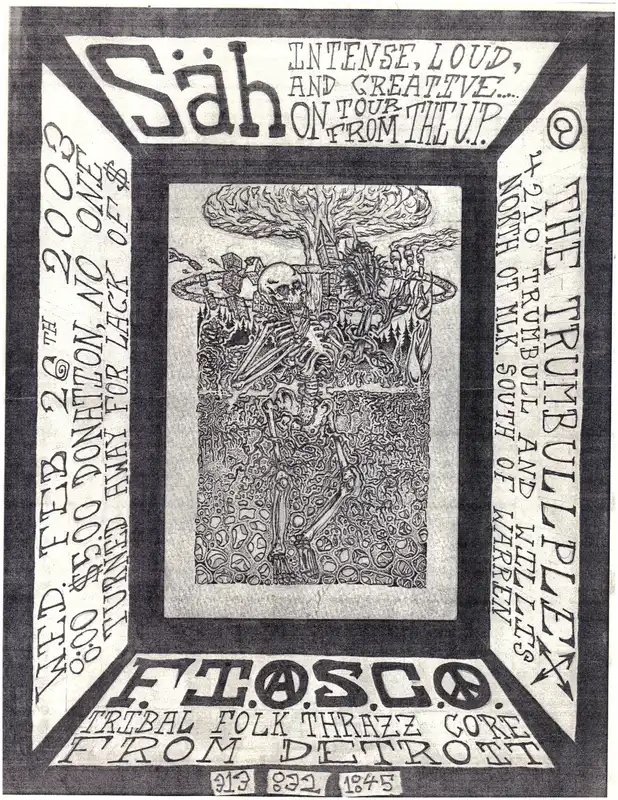 Säh
INTENSE, LOUD,
AND CREATIVE....
ON TOUR FROM THE U.P.
THE TRUMBULLPLEX
4210 TRUMBULL AND WILLIS
NORTH OF MLK. SOUTH OF WARREN
WED. FEB 26TH 2003
8:00 $5.00 DONATION, NO ONE
TURNED AWAY FOR LACK OF $
F.I.A.S.C.O.
TRIBAL FOLK THRAZZ CORE
FROM DETROIT
313 832 1845